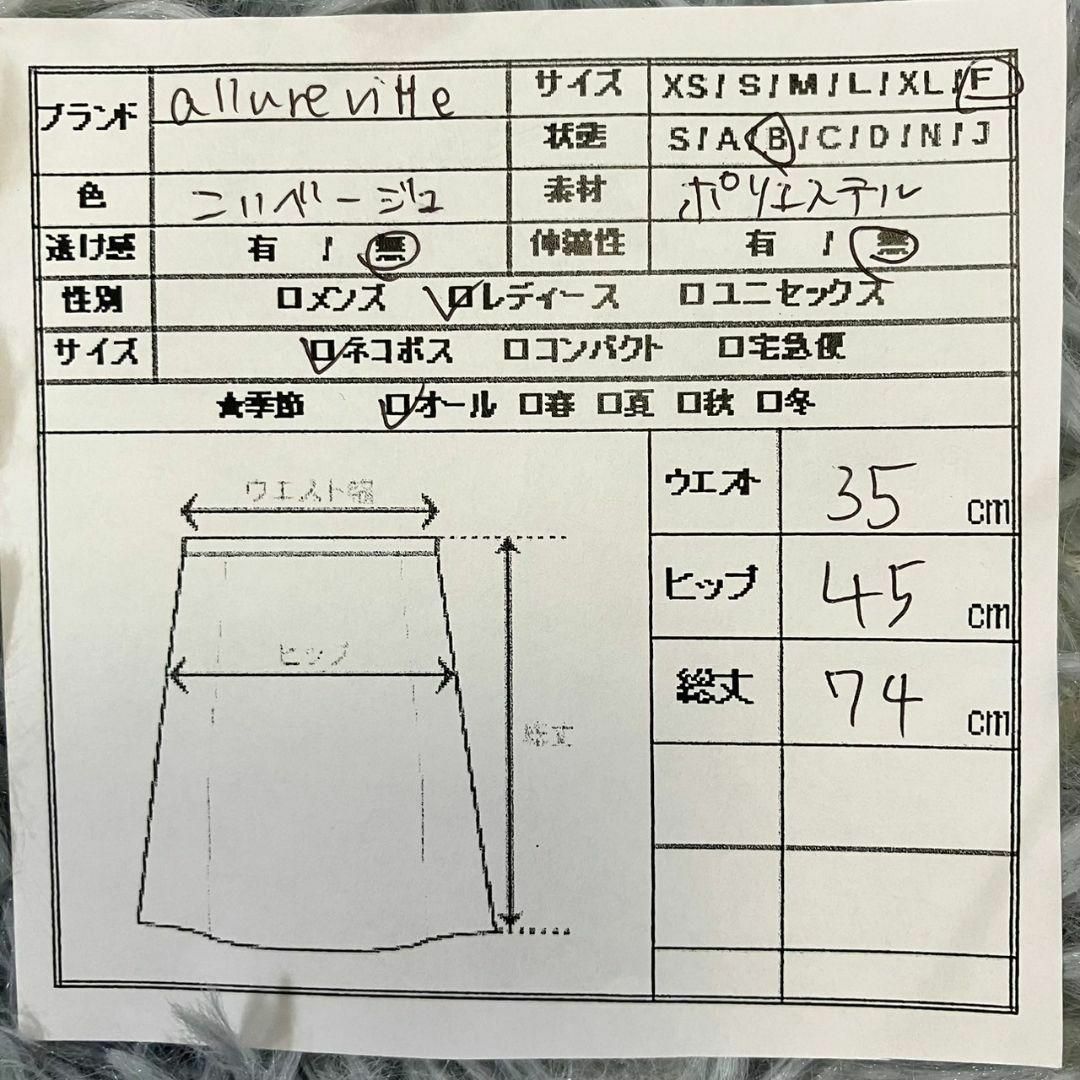 ブランド allureville サイズ XS/S/M/L/XL/F
状態 S/A/B/C/D/N/J
色 こいベージュ 素材 ポリエステル
透け感 有 / 無 伸縮性 有 / 無
性別 □メンズ □レディース □ユニセックス
サイズ □ネコポス □コンパクト □宅急便
★季節 □オール □春 □夏 □秋 □冬
ウエスト幅
ヒップ
総丈
ウエスト 35 cm
ヒップ 45 cm
総丈 74 cm